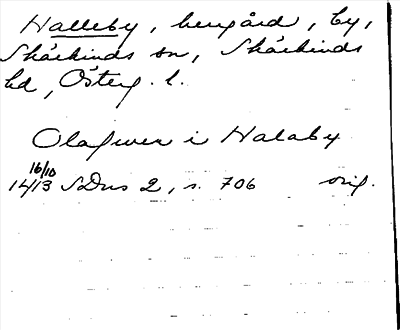 Halleby, herrgård, by,
Skärkinds sn, Skärkinds
hd, Österg. l.
Olafwer i Halaby
16/10
1413 SDns 2, s. 706 orig.